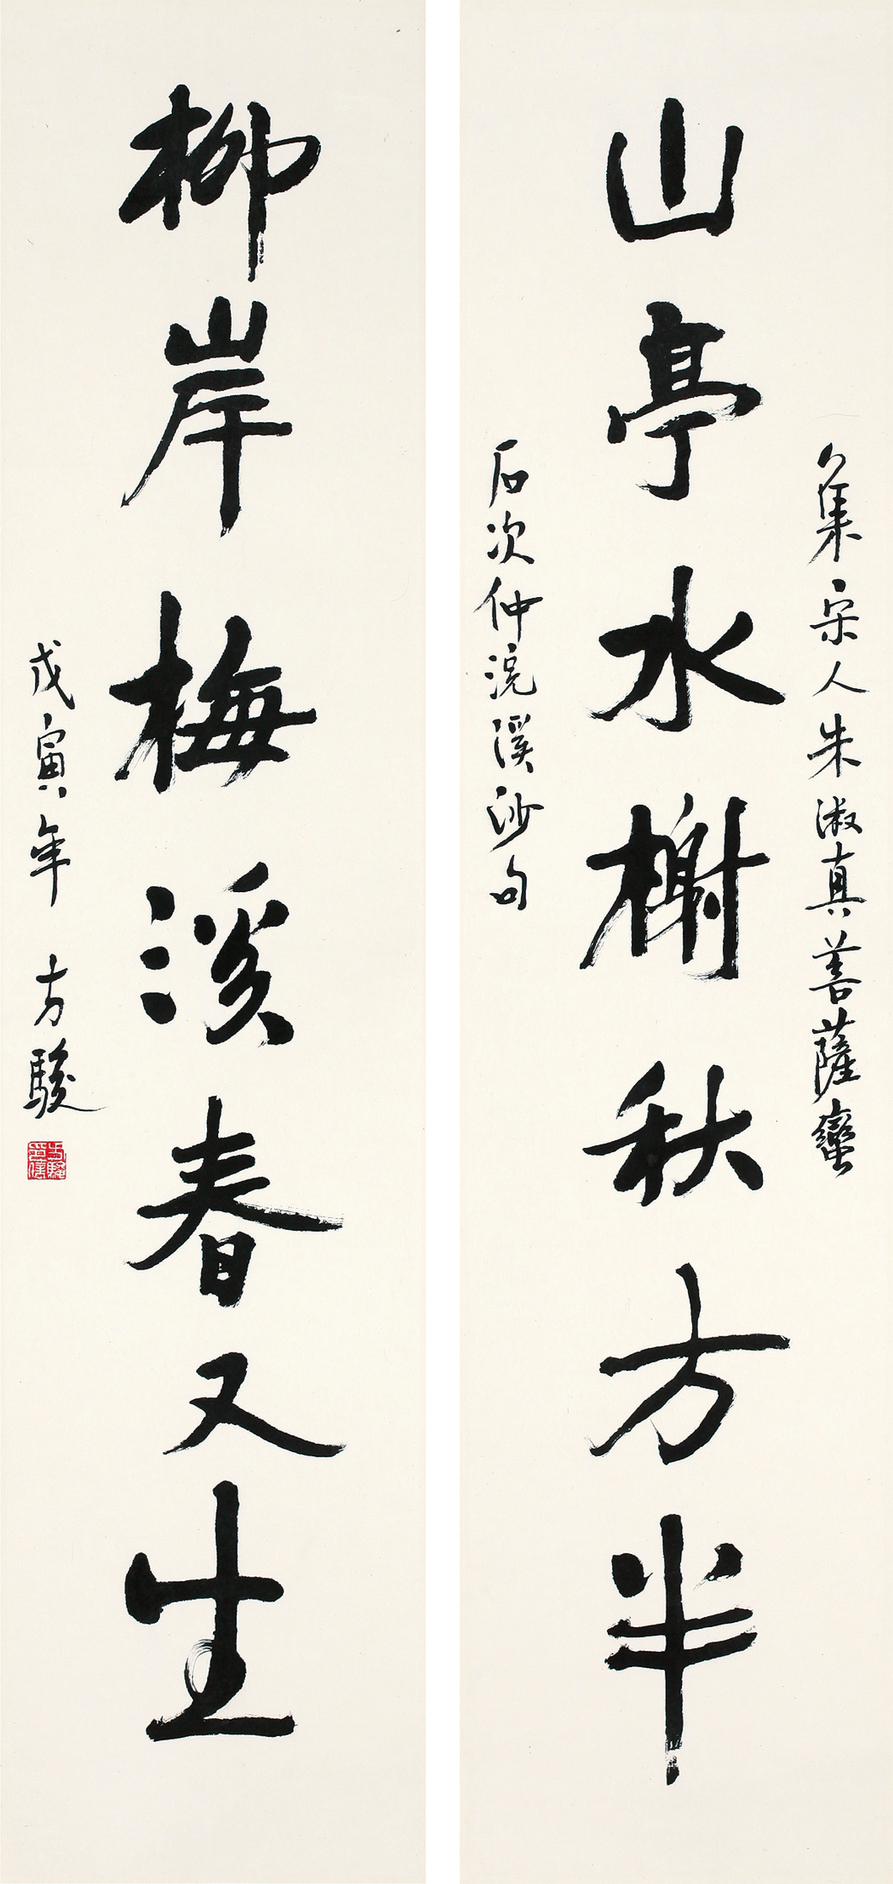 集宋人朱淑真菩薩蠻
山亭水榭秋方半
石次仲浣溪沙句
柳岸梅溪春又生
戊寅年 方駿
方駿印信